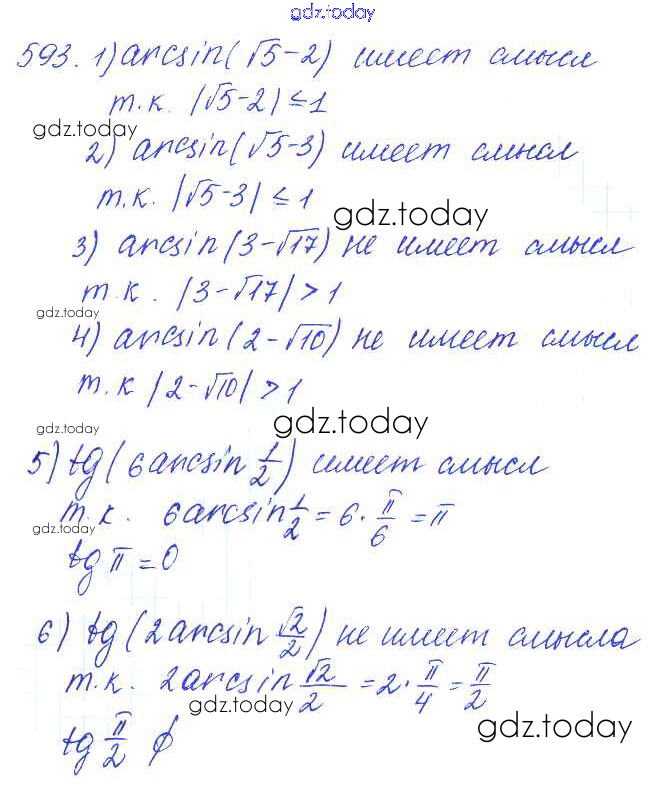 gdz.today
593. 1) arcsin(√5-2) имеет смысл
т.к. |√5-2| ≤ 1
gdz.today
2) arcsin(√5-3) имеет смысл
т.к. |√5-3| ≤ 1
gdz.today
3) arcsin(3-√17) не имеет смысл
т.к. |3-√17| > 1
gdz.today
4) arcsin(2-√10) не имеет смысл
т.к |2-√10| > 1
gdz.today
gdz.today
5) tg(6 arcsin 1/2) имеет смысл
т.к. 6 arcsin 1/2 = 6 · π/6 = π
gdz.today
tg π = 0
6) tg(2 arcsin √2/2) не имеет смысла
т.к. 2 arcsin √2/2 = 2 · π/4 = π/2
gdz.today
gdz.today
tg π/2 ∅